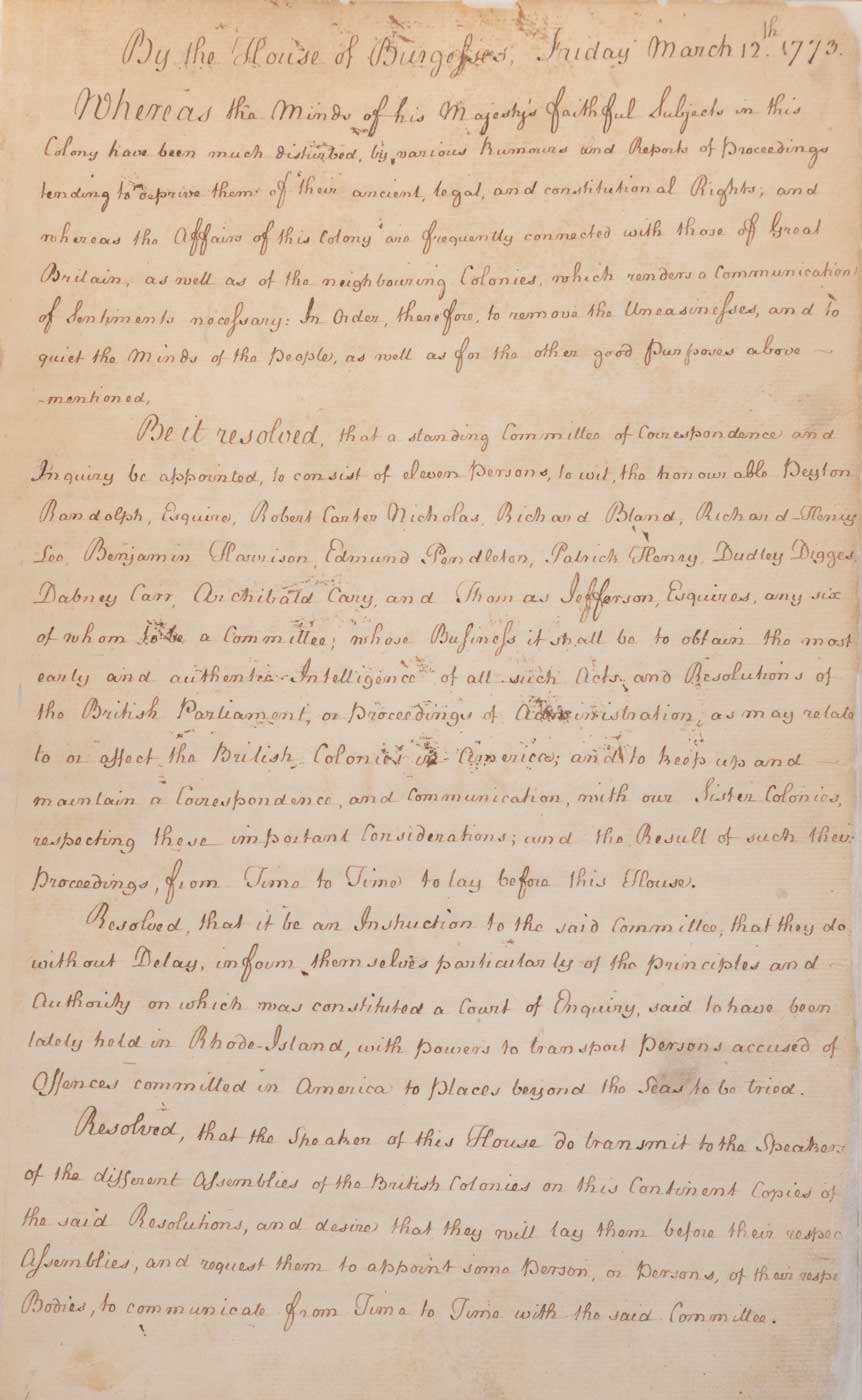 By the House of Burgesses, Friday March 12th. 1773.
Whereas the Minds of his Majesty's faithful Subjects in this
Colony have been much disturbed, by various Rumours and Reports of Proceedings
tending to deprive them of their ancient, legal, and constitutional Rights; and
whereas the Affairs of this Colony are frequently connected with those of Great
Britain, as well as of the neighbouring Colonies, which renders a Communication
of Sentiments necessary: In Order, therefore, to remove the Uneasinesses, and to
quiet the Minds of the People, as well as for the other good Purposes above
-mentioned,
Be it resolved, that a standing Committee of Correspondence and
Inquiry be appointed, to consist of eleven Persons, to wit, the honourable Peyton
Randolph, Esquire, Robert Carter Nicholas, Richard Bland, Richard Henry
Lee, Benjamin Harrison, Edmund Pendleton, Patrick Henry, Dudley Digges,
Dabney Carr, Archibald Cary, and Thomas Jefferson, Esquires, any six
of whom to be a Committee; whose Business it shall be to obtain the most
early and authentic Intelligence of all such Acts and Resolutions of
the British Parliament, or Proceedings of Administration, as may relate
to or affect the British Colonies in America; and to keep up and
maintain a Correspondence, and Communication, with our Sister Colonies,
respecting these important Considerations; and the Result of such their
Proceedings, from Time to Time to lay before this House.
Resolved, that it be an Instruction to the said Committee, that they do,
without Delay, inform themselves particularly of the principles and
Authority on which was constituted a Court of Enquiry, said to have been
lately held in Rhode-Island, with powers to transport Persons accused of
Offences committed in America to places beyond the Seas to be tried.
Resolved, that the Speaker of this House do transmit to the Speakers
of the different Assemblies of the British Colonies on this Continent Copies of
the said Resolutions, and desire that they will lay them before their respec
Assemblies, and request them to appoint some Person, or Persons, of their respe
Bodies, to communicate from Time to Time with the said Committee.